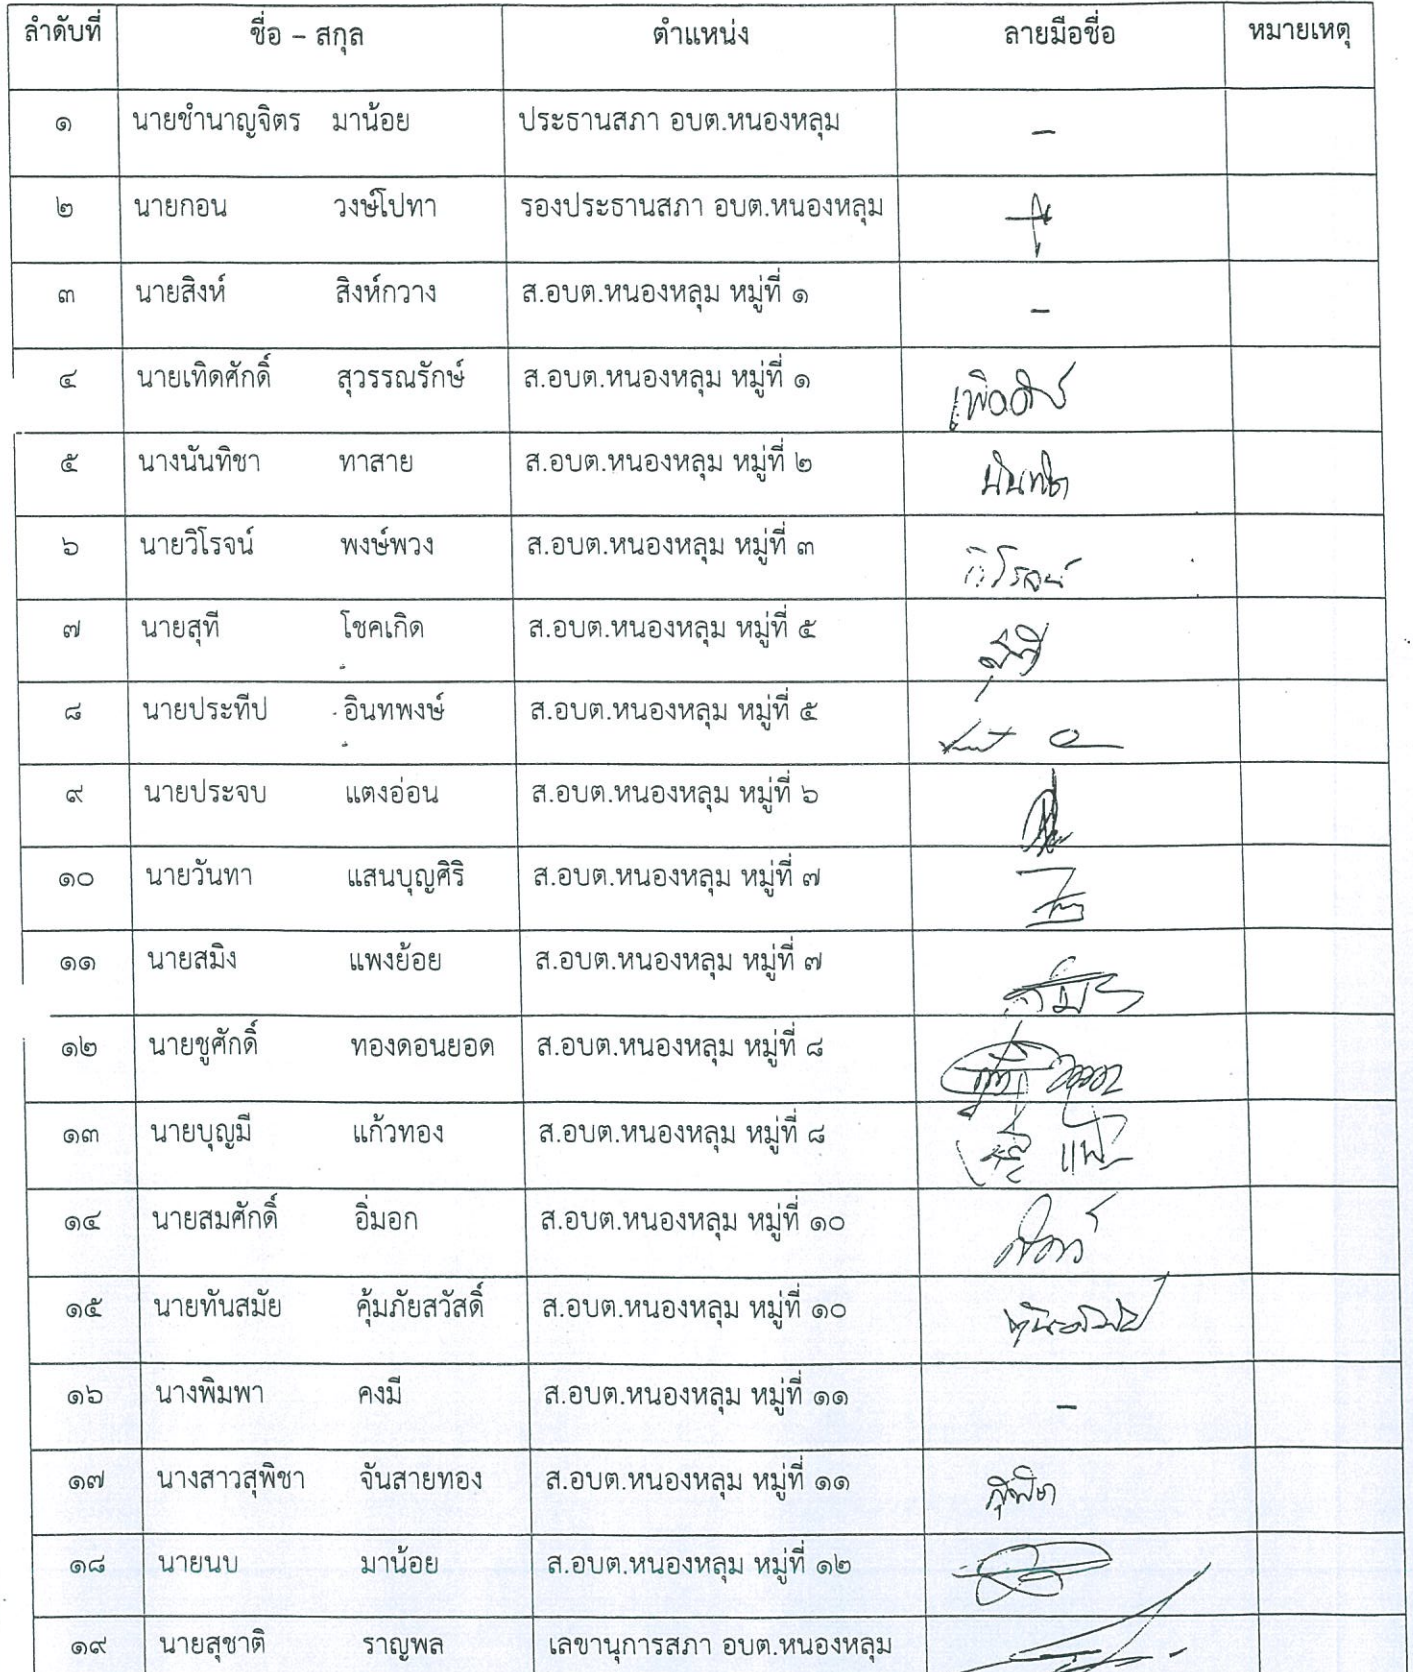 ลำดับที่ ชื่อ – สกุล ตำแหน่ง ลายมือชื่อ หมายเหตุ
๑ นายชำนาญจิตร มาน้อย ประธานสภา อบต.หนองหลุม –
๒ นายกอน วงษ์โปทา รองประธานสภา อบต.หนองหลุม
๓ นายสิงห์ สิงห์กวาง ส.อบต.หนองหลุม หมู่ที่ ๑ –
๔ นายเทิดศักดิ์ สุวรรณรักษ์ ส.อบต.หนองหลุม หมู่ที่ ๑
๕ นางนันทิชา ทาสาย ส.อบต.หนองหลุม หมู่ที่ ๒ นันทิชา
๖ นายวิโรจน์ พงษ์พวง ส.อบต.หนองหลุม หมู่ที่ ๓ วิโรจน์
๗ นายสุที โชคเกิด ส.อบต.หนองหลุม หมู่ที่ ๕ สุที
๘ นายประทีป อินทพงษ์ ส.อบต.หนองหลุม หมู่ที่ ๕
๙ นายประจบ แตงอ่อน ส.อบต.หนองหลุม หมู่ที่ ๖
๑๐ นายวันทา แสนบุญศิริ ส.อบต.หนองหลุม หมู่ที่ ๗
๑๑ นายสมิง แพงย้อย ส.อบต.หนองหลุม หมู่ที่ ๗
๑๒ นายชูศักดิ์ ทองดอนยอด ส.อบต.หนองหลุม หมู่ที่ ๘
๑๓ นายบุญมี แก้วทอง ส.อบต.หนองหลุม หมู่ที่ ๘
๑๔ นายสมศักดิ์ อิ่มอก ส.อบต.หนองหลุม หมู่ที่ ๑๐
๑๕ นายทันสมัย คุ้มภัยสวัสดิ์ ส.อบต.หนองหลุม หมู่ที่ ๑๐ ทันสมัย
๑๖ นางพิมพา คงมี ส.อบต.หนองหลุม หมู่ที่ ๑๑ –
๑๗ นางสาวสุพิชา จันสายทอง ส.อบต.หนองหลุม หมู่ที่ ๑๑ สุพิชา
๑๘ นายนบ มาน้อย ส.อบต.หนองหลุม หมู่ที่ ๑๒
๑๙ นายสุชาติ ราญพล เลขานุการสภา อบต.หนองหลุม